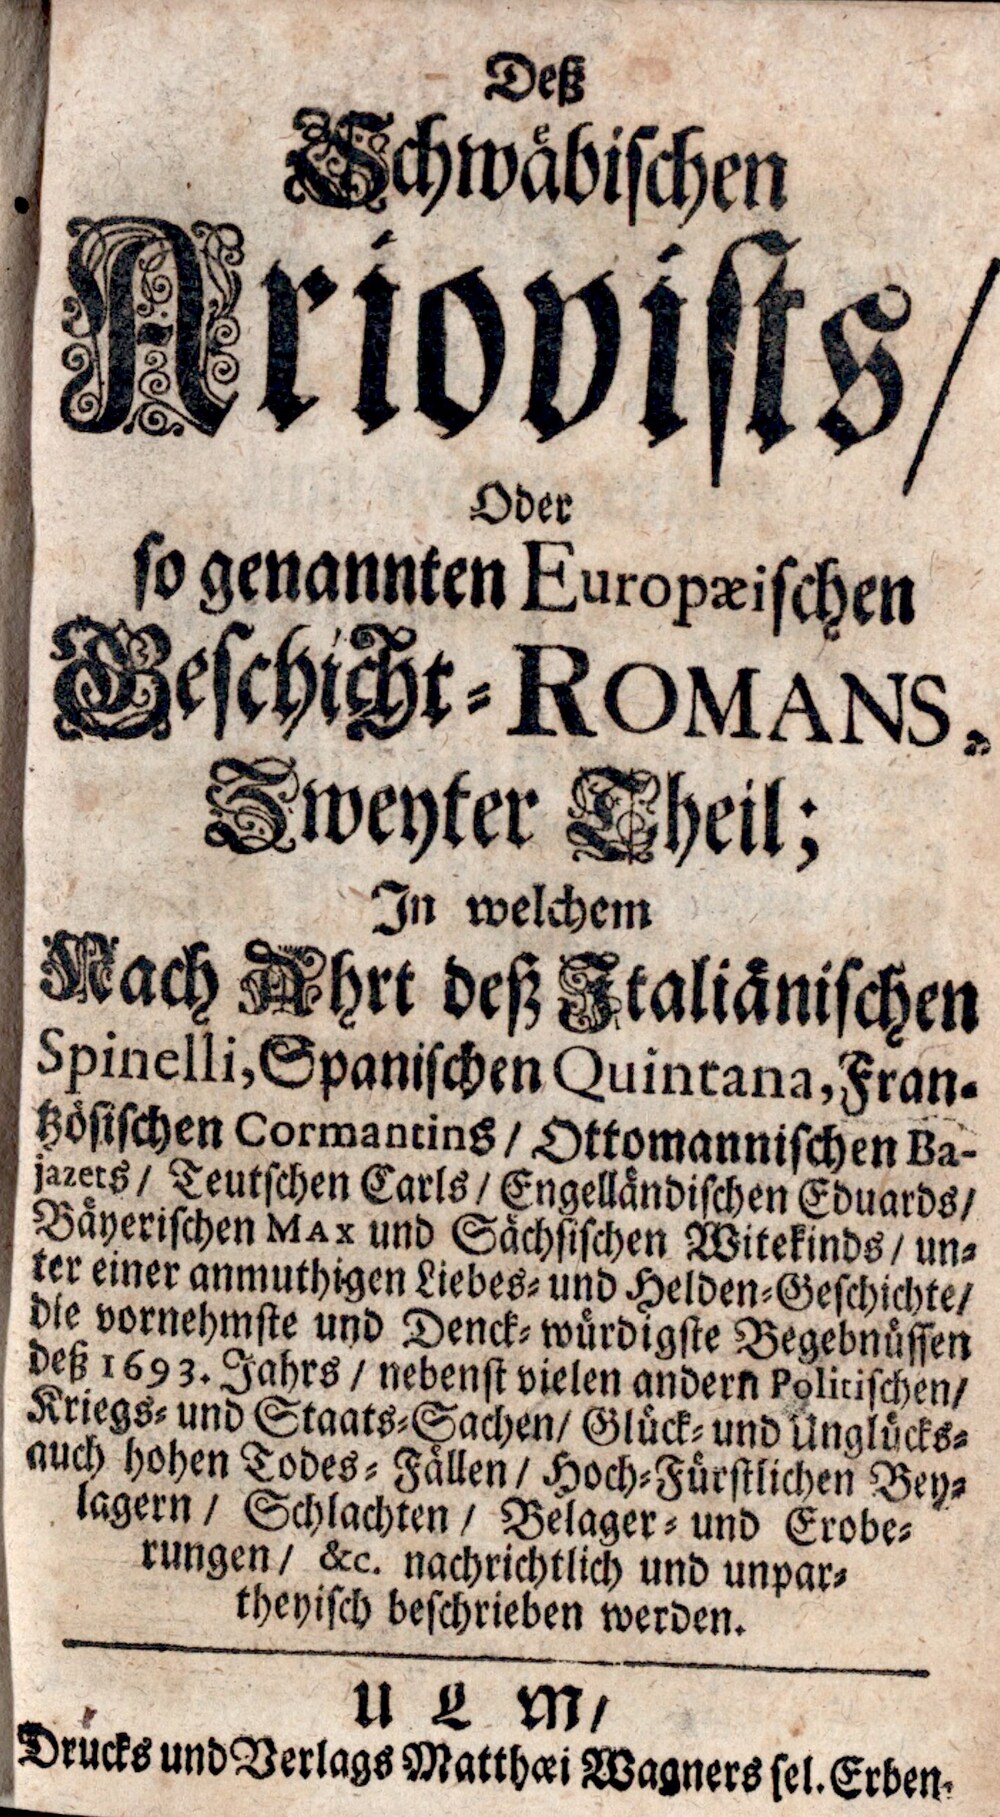 Deß
Schwäbischen
Ariovists/
Oder
so genannten Europæischen
Geschicht-ROMANS.
Zweyter Theil;
In welchem
Nach Ahrt deß Italiänischen
Spinelli, Spanischen Quintana, Fran-
tzösischen Cormantins/ Ottomannischen Ba-
jazets/ Teutschen Carls/ Engelländischen Eduards/
Bäyerischen MAX und Sächsischen Witekinds/ un-
ter einer anmuthigen Liebes- und Helden-Geschichte/
die vornehmste und Denck-würdigste Begebnüssen
deß 1693. Jahrs/ nebenst vielen andern Politischen/
Kriegs- und Staats-Sachen/ Glück- und Unglücks-
auch hohen Todes-Fällen/ Hoch-Fürstlichen Bey-
lagern/ Schlachten/ Belager- und Erobe-
rungen/ &c. nachrichtlich und unpar-
theyisch beschrieben werden.
ULM/
Drucks und Verlags Matthæi Wagners sel. Erben.